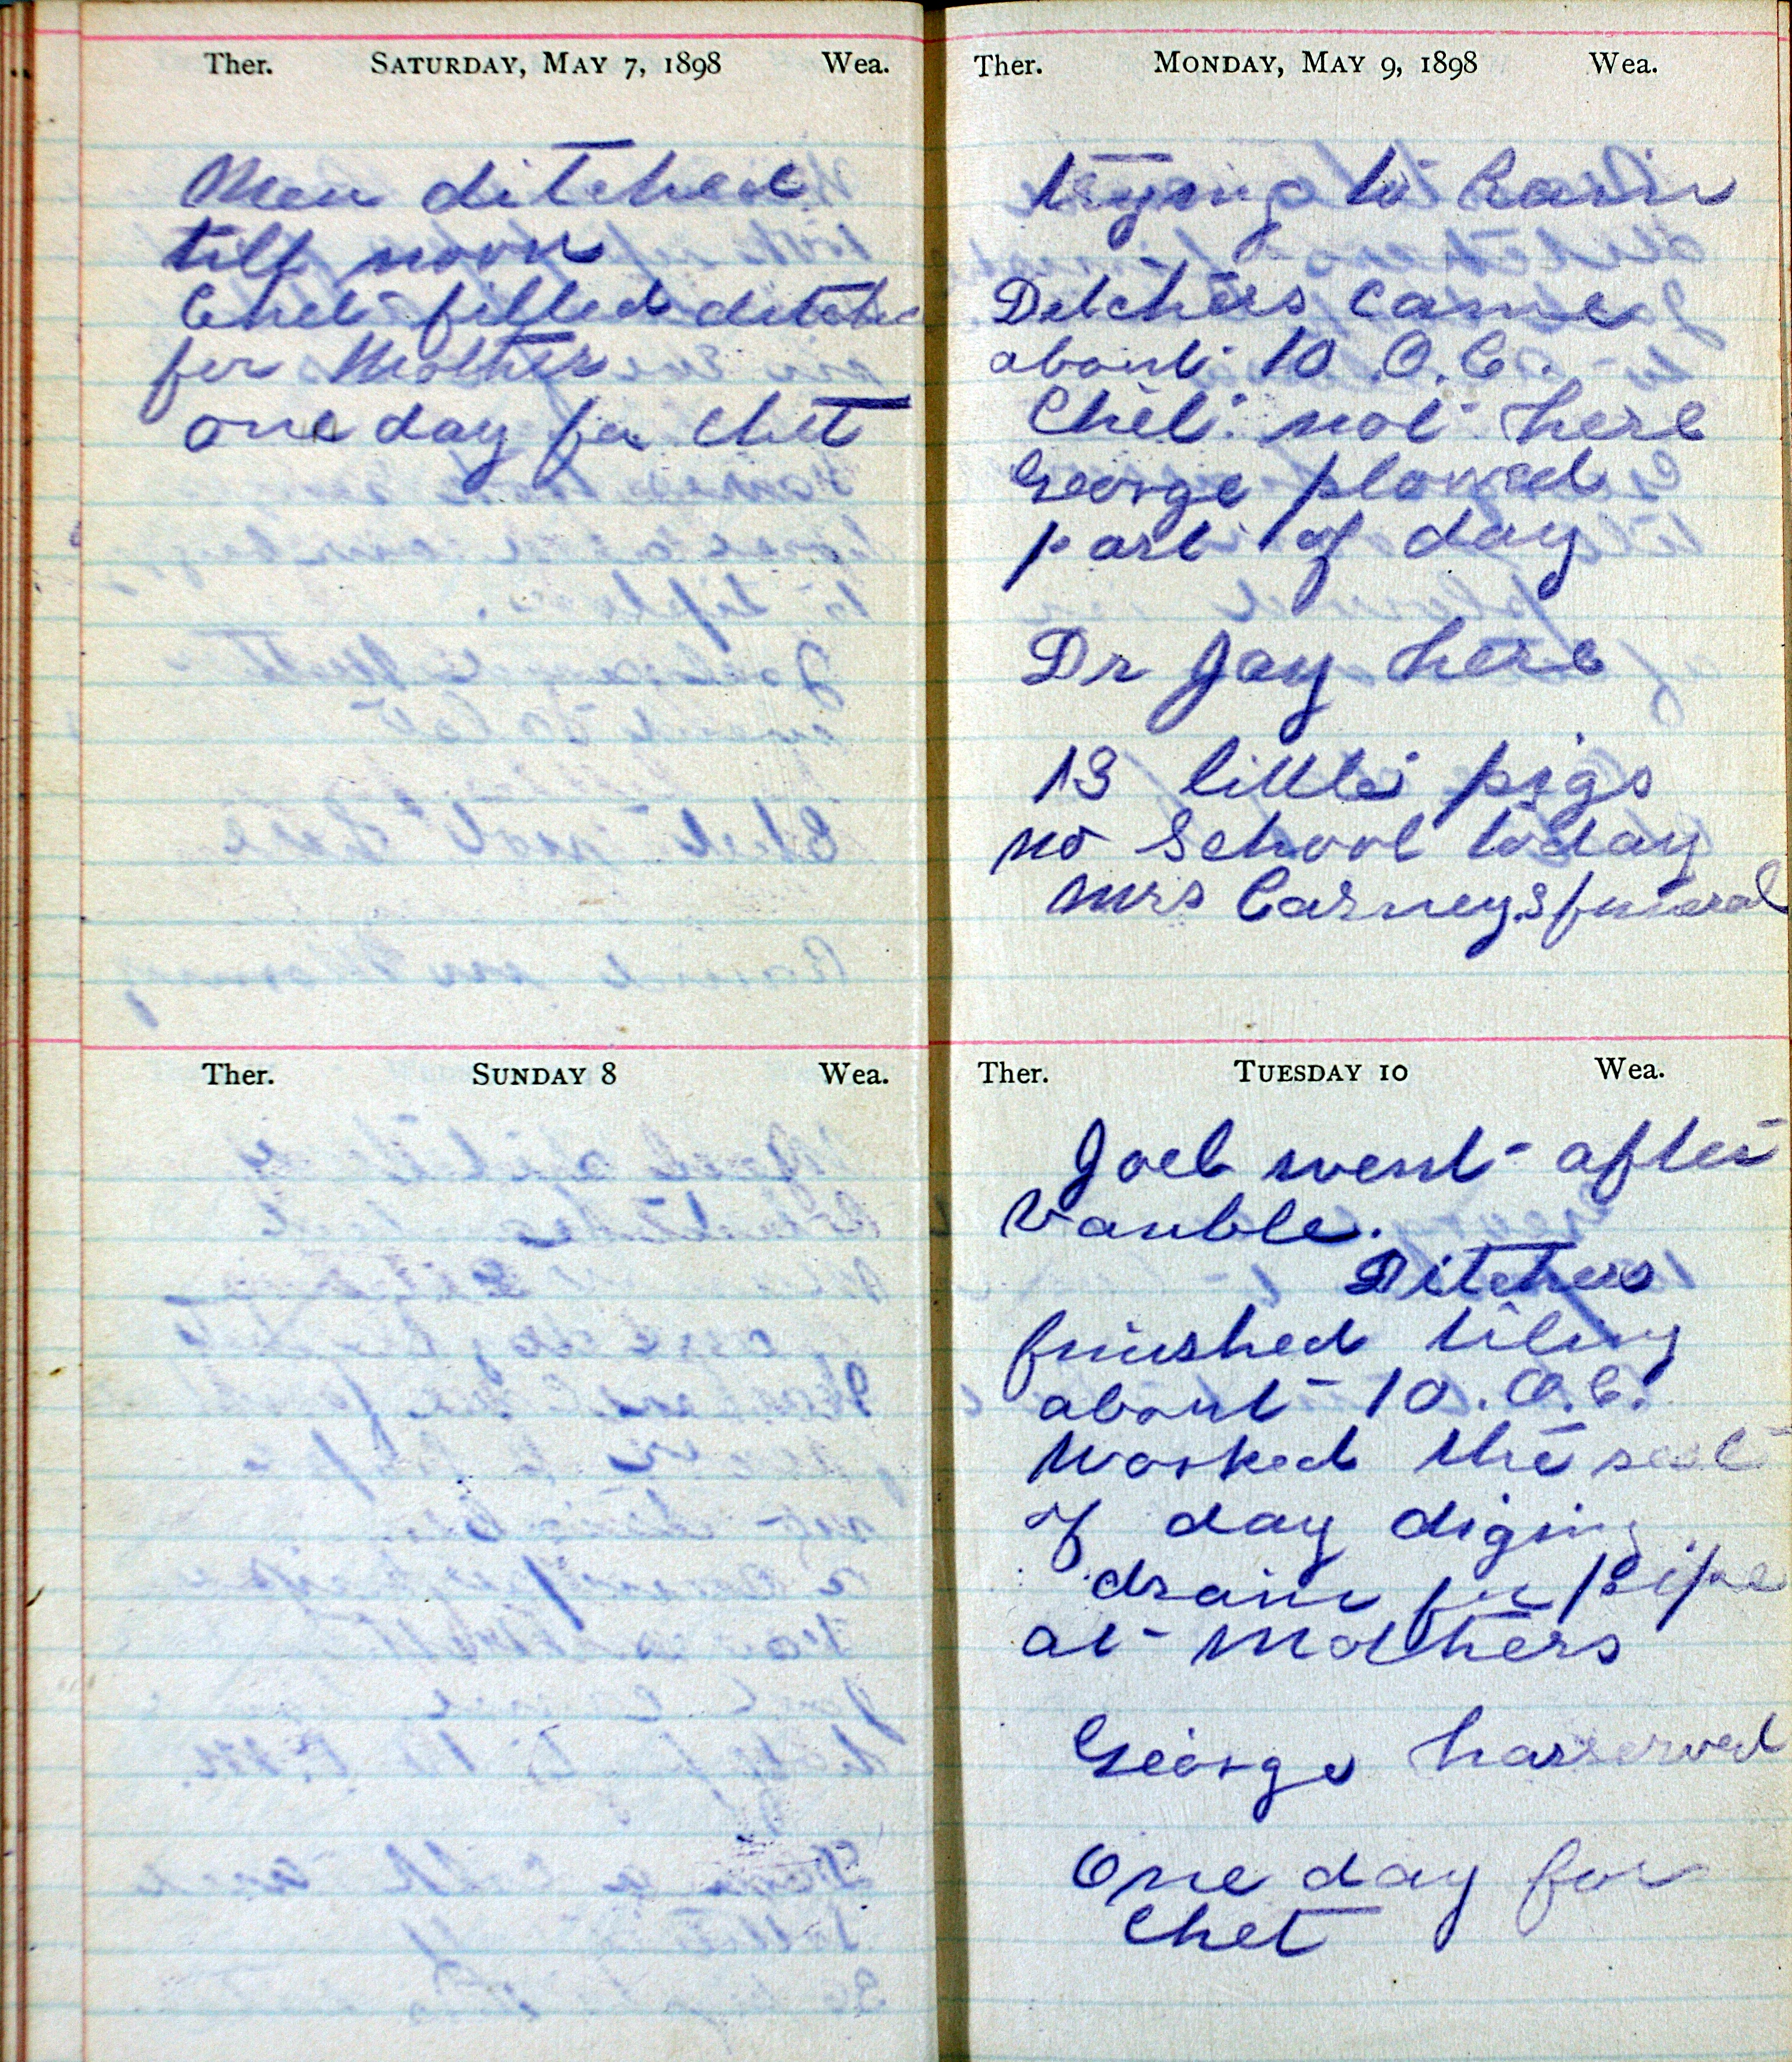 Ther. SATURDAY, MAY 7, 1898 Wea.
Men ditched
till noon
Chet filled ditche
for Mother
one day for Chet
Ther. SUNDAY 8 Wea.
Ther. MONDAY, MAY 9, 1898 Wea.
trying to Rain
Ditchers came
about 10 O.C.
Chet not here
George plowed
part of day
Dr Jay here
13 little pigs
no School today
Mrs Carneys funeral
Ther. TUESDAY 10 Wea.
Joel went after
Vauble.
Ditchers
finished tiling
about 10. O.C.
Worked the rest
of day diging
drain for Pipe
at Mothers
George harrerved
One day for
Chet